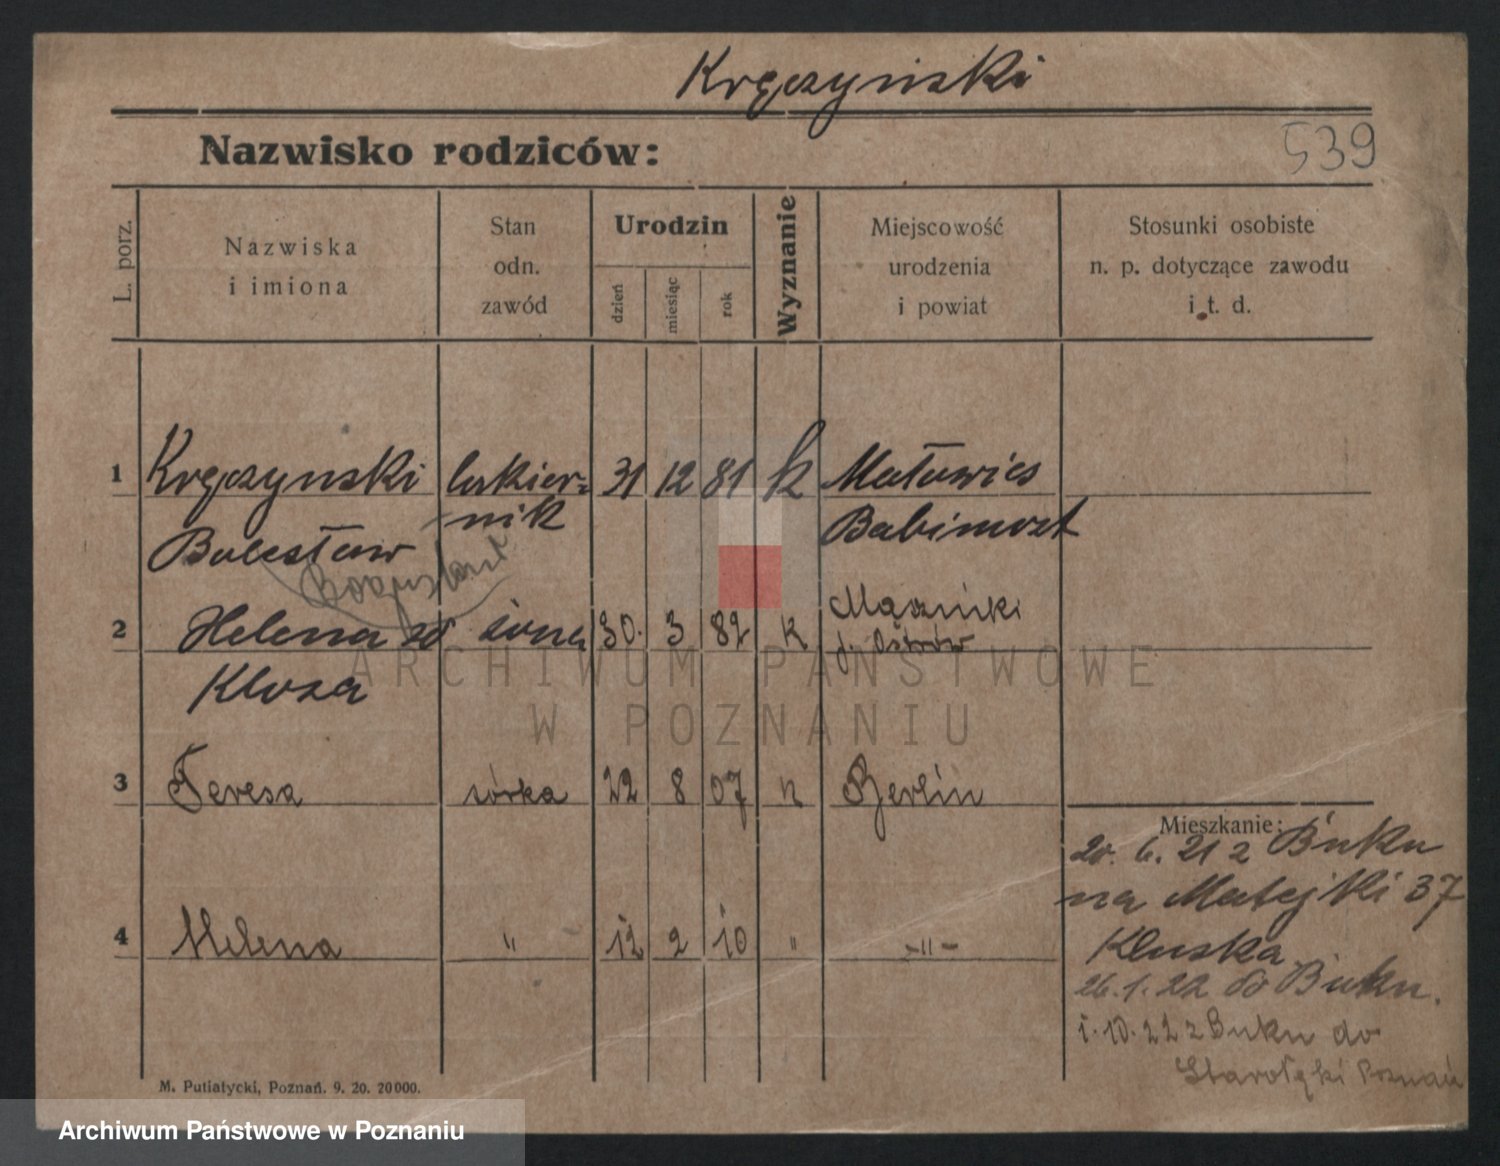 Kręczyński
Nazwisko rodziców:
539
L. porz.
Nazwiska
i imiona
Stan
odn.
zawód
Urodzin
dzień
miesiąc
rok
Wyznanie
Miejscowość
urodzenia
i powiat
Stosunki osobiste
n. p. dotyczące zawodu
i t. d.
1 Kręczynski cukier- 31 12 81 k
nik Babimost
Bolesław
Bogusław
2 Helena zd żona 30. 3 82 k Mączniki
p. Ostrów
3 Teresa córka 22 8 07 k Berlin
4 Helena " 12 2 10 " -"-
Mieszkanie:
20. 6. 21 z Buku
na Matejki 37
Kluska
26.1.22 do Buku.
1.10.22 z Buku do
Starołęki Poznań
M. Putiatycki, Poznań. 9. 20. 20000.
ARCHIWUM PAŃSTWOWE
W POZNANIU
Archiwum Państwowe w Poznaniu